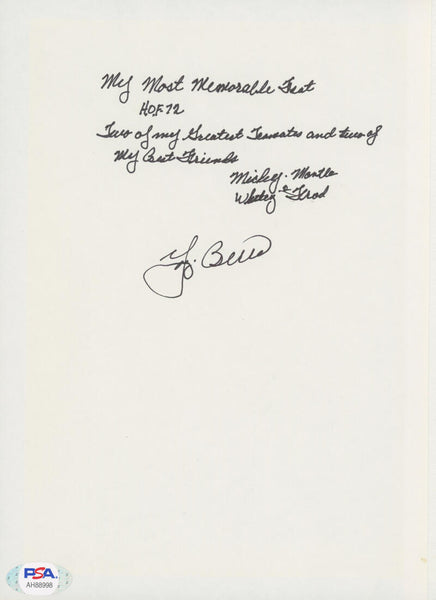 My Most Memorable Feat
HOF 72
Two of my Greatest Teamates and two of
My Best Friends
Mickey. Mantle
Whitey & Frod
Y. Berra
PSA.
AH88998